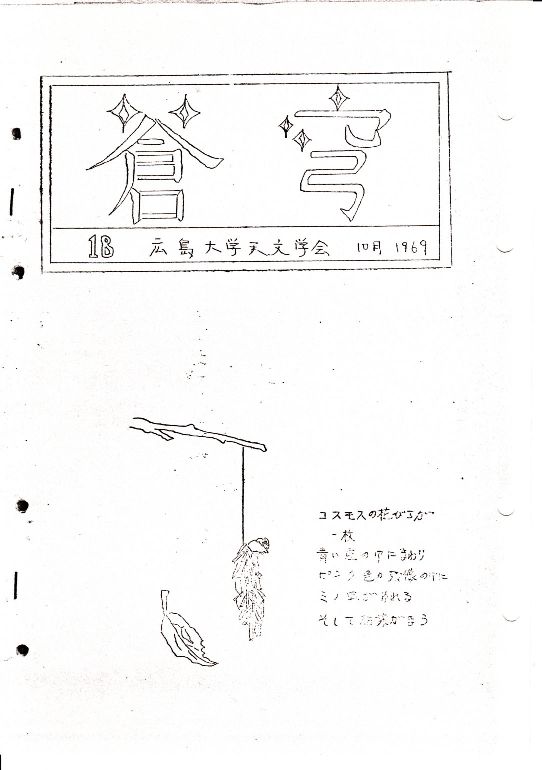 蒼穹
18 広島大学天文学会 10月 1969
コスモスの花びらが
一枚
青い空の中にまわり
ピンク色の残像の中に
ミノ虫がゆれる
そして落葉がまう